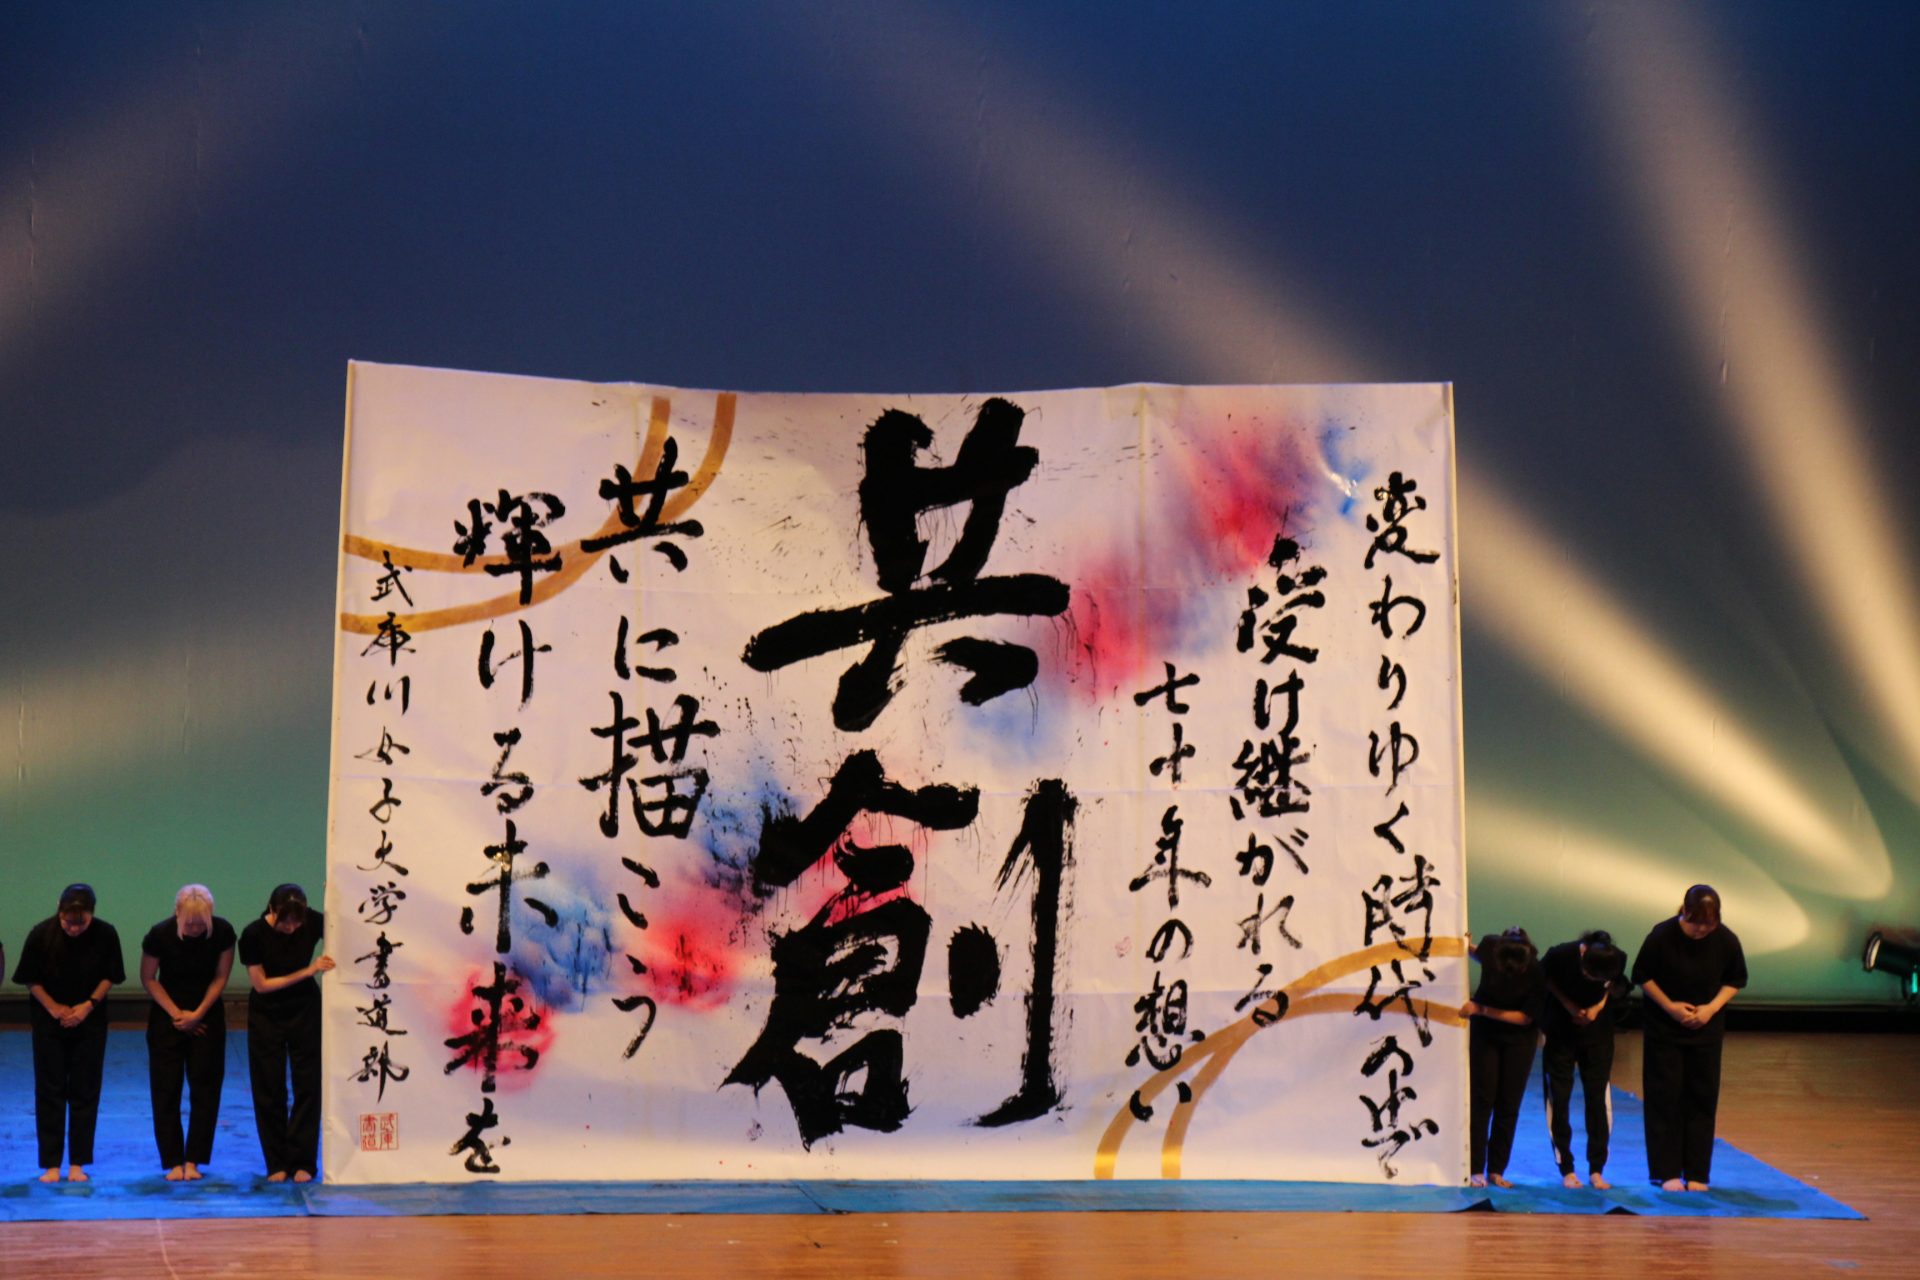 変わりゆく時代の中で
受け継がれる
七十年の想い
共創
共に描こう
輝ける未来を
武庫川女子大学書道部
武庫
書道